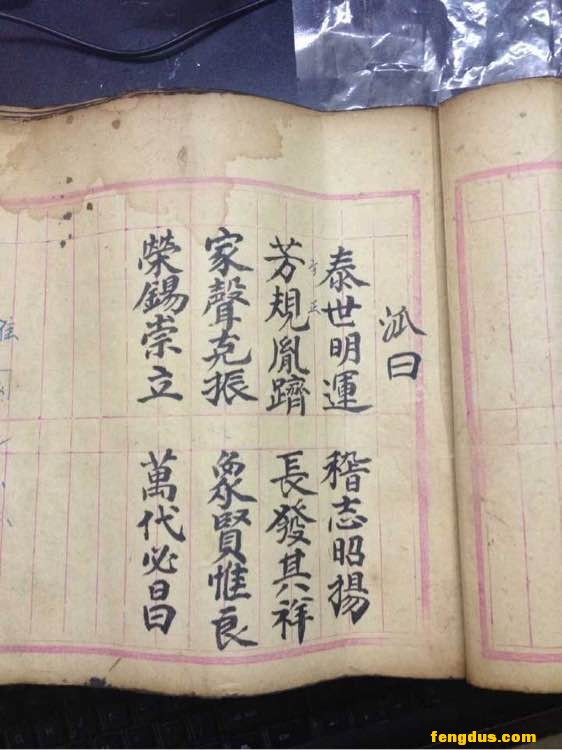 泒曰
泰世明運 稽志昭揚
芳規胤躋 長發其祥
家聲克振 象賢惟良
榮錫崇立 萬代必昌
fengdus.com